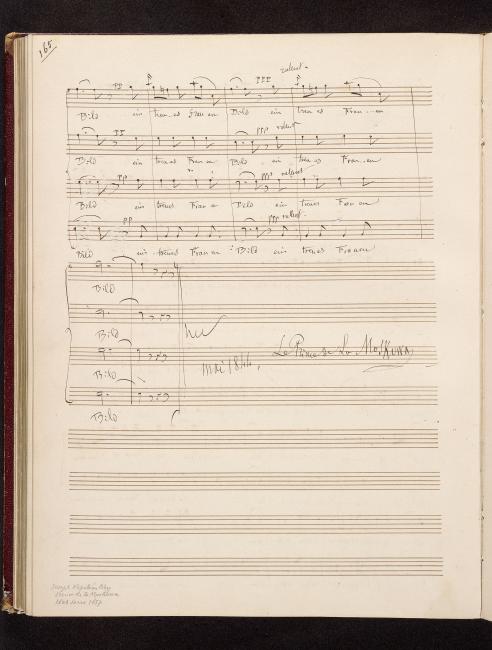 165
ralent
PP PPP
Bild ein treues Frauen Bild ein treues Frauen
PP PPP ralent
Bild ein treues Frauen Bild ein treues Frauen
PP PPP ralent
Bild ein treues Frauen Bild ein treues Frauen
PP PPP ralent
Bild ein treues Frauen Bild ein treues Frauen
Bild
Bild
Le Prince de La Moskowa
mai 1844.
Bild
Bild
Joseph Napoléon Ney
Prince de la Moskowa